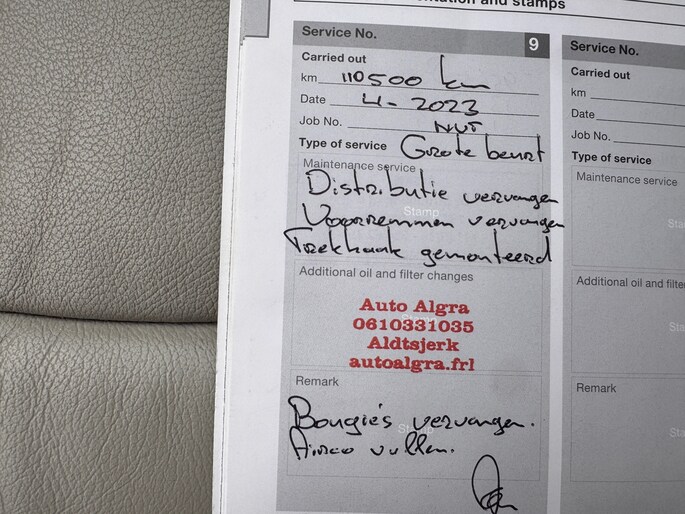 entation and stamps
Service No. 9
Carried out
km 110500 km
Date 4-2023
Job No. NVT
Type of service Grote beurt
Maintenance service
Distributie vervangen
Stamp
Voorremmen vervangen
Trekhaak gemonteerd
Additional oil and filter changes
Auto Algra
0610331035
Aldtsjerk
autoalgra.frl
Remark
Bougie's vervangen.
Stamp
Airco vullen.
Service No.
Carried out
km
Date
Job No.
Type of service
Maintenance service
Sta
Additional oil and filte
Sta
Remark
Sta